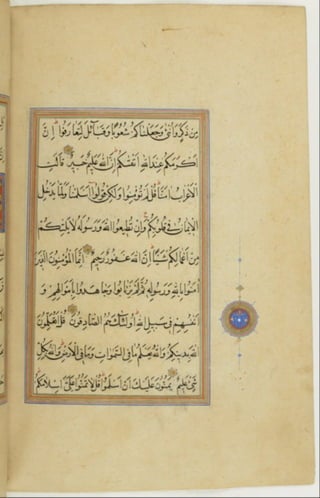 مِن ذَكَرٍ وَأُنثَىٰ وَجَعَلْنَاكُمْ شُعُوبًا وَقَبَائِلَ لِتَعَارَفُوا إِنَّ
أَكْرَمَكُمْ عِندَ اللَّهِ أَتْقَاكُمْ إِنَّ اللَّهَ عَلِيمٌ خَبِيرٌ قَالَتِ
الْأَعْرَابُ آمَنَّا قُل لَّمْ تُؤْمِنُوا وَلَٰكِن قُولُوا أَسْلَمْنَا وَلَمَّا يَدْخُلِ
الْإِيمَانُ فِي قُلُوبِكُمْ وَإِن تُطِيعُوا اللَّهَ وَرَسُولَهُ لَا يَلِتْكُم
مِّنْ أَعْمَالِكُمْ شَيْئًا إِنَّ اللَّهَ غَفُورٌ رَّحِيمٌ إِنَّمَا الْمُؤْمِنُونَ الَّذِينَ
آمَنُوا بِاللَّهِ وَرَسُولِهِ ثُمَّ لَمْ يَرْتَابُوا وَجَاهَدُوا بِأَمْوَالِهِمْ وَ
أَنفُسِهِمْ فِي سَبِيلِ اللَّهِ أُولَٰئِكَ هُمُ الصَّادِقُونَ قُلْ أَتُعَلِّمُونَ
اللَّهَ بِدِينِكُمْ وَاللَّهُ يَعْلَمُ مَا فِي السَّمَاوَاتِ وَمَا فِي الْأَرْضِ وَاللَّهُ بِكُلِّ
شَيْءٍ عَلِيمٌ يَمُنُّونَ عَلَيْكَ أَنْ أَسْلَمُوا قُل لَّا تَمُنُّوا عَلَيَّ إِسْلَامَكُم